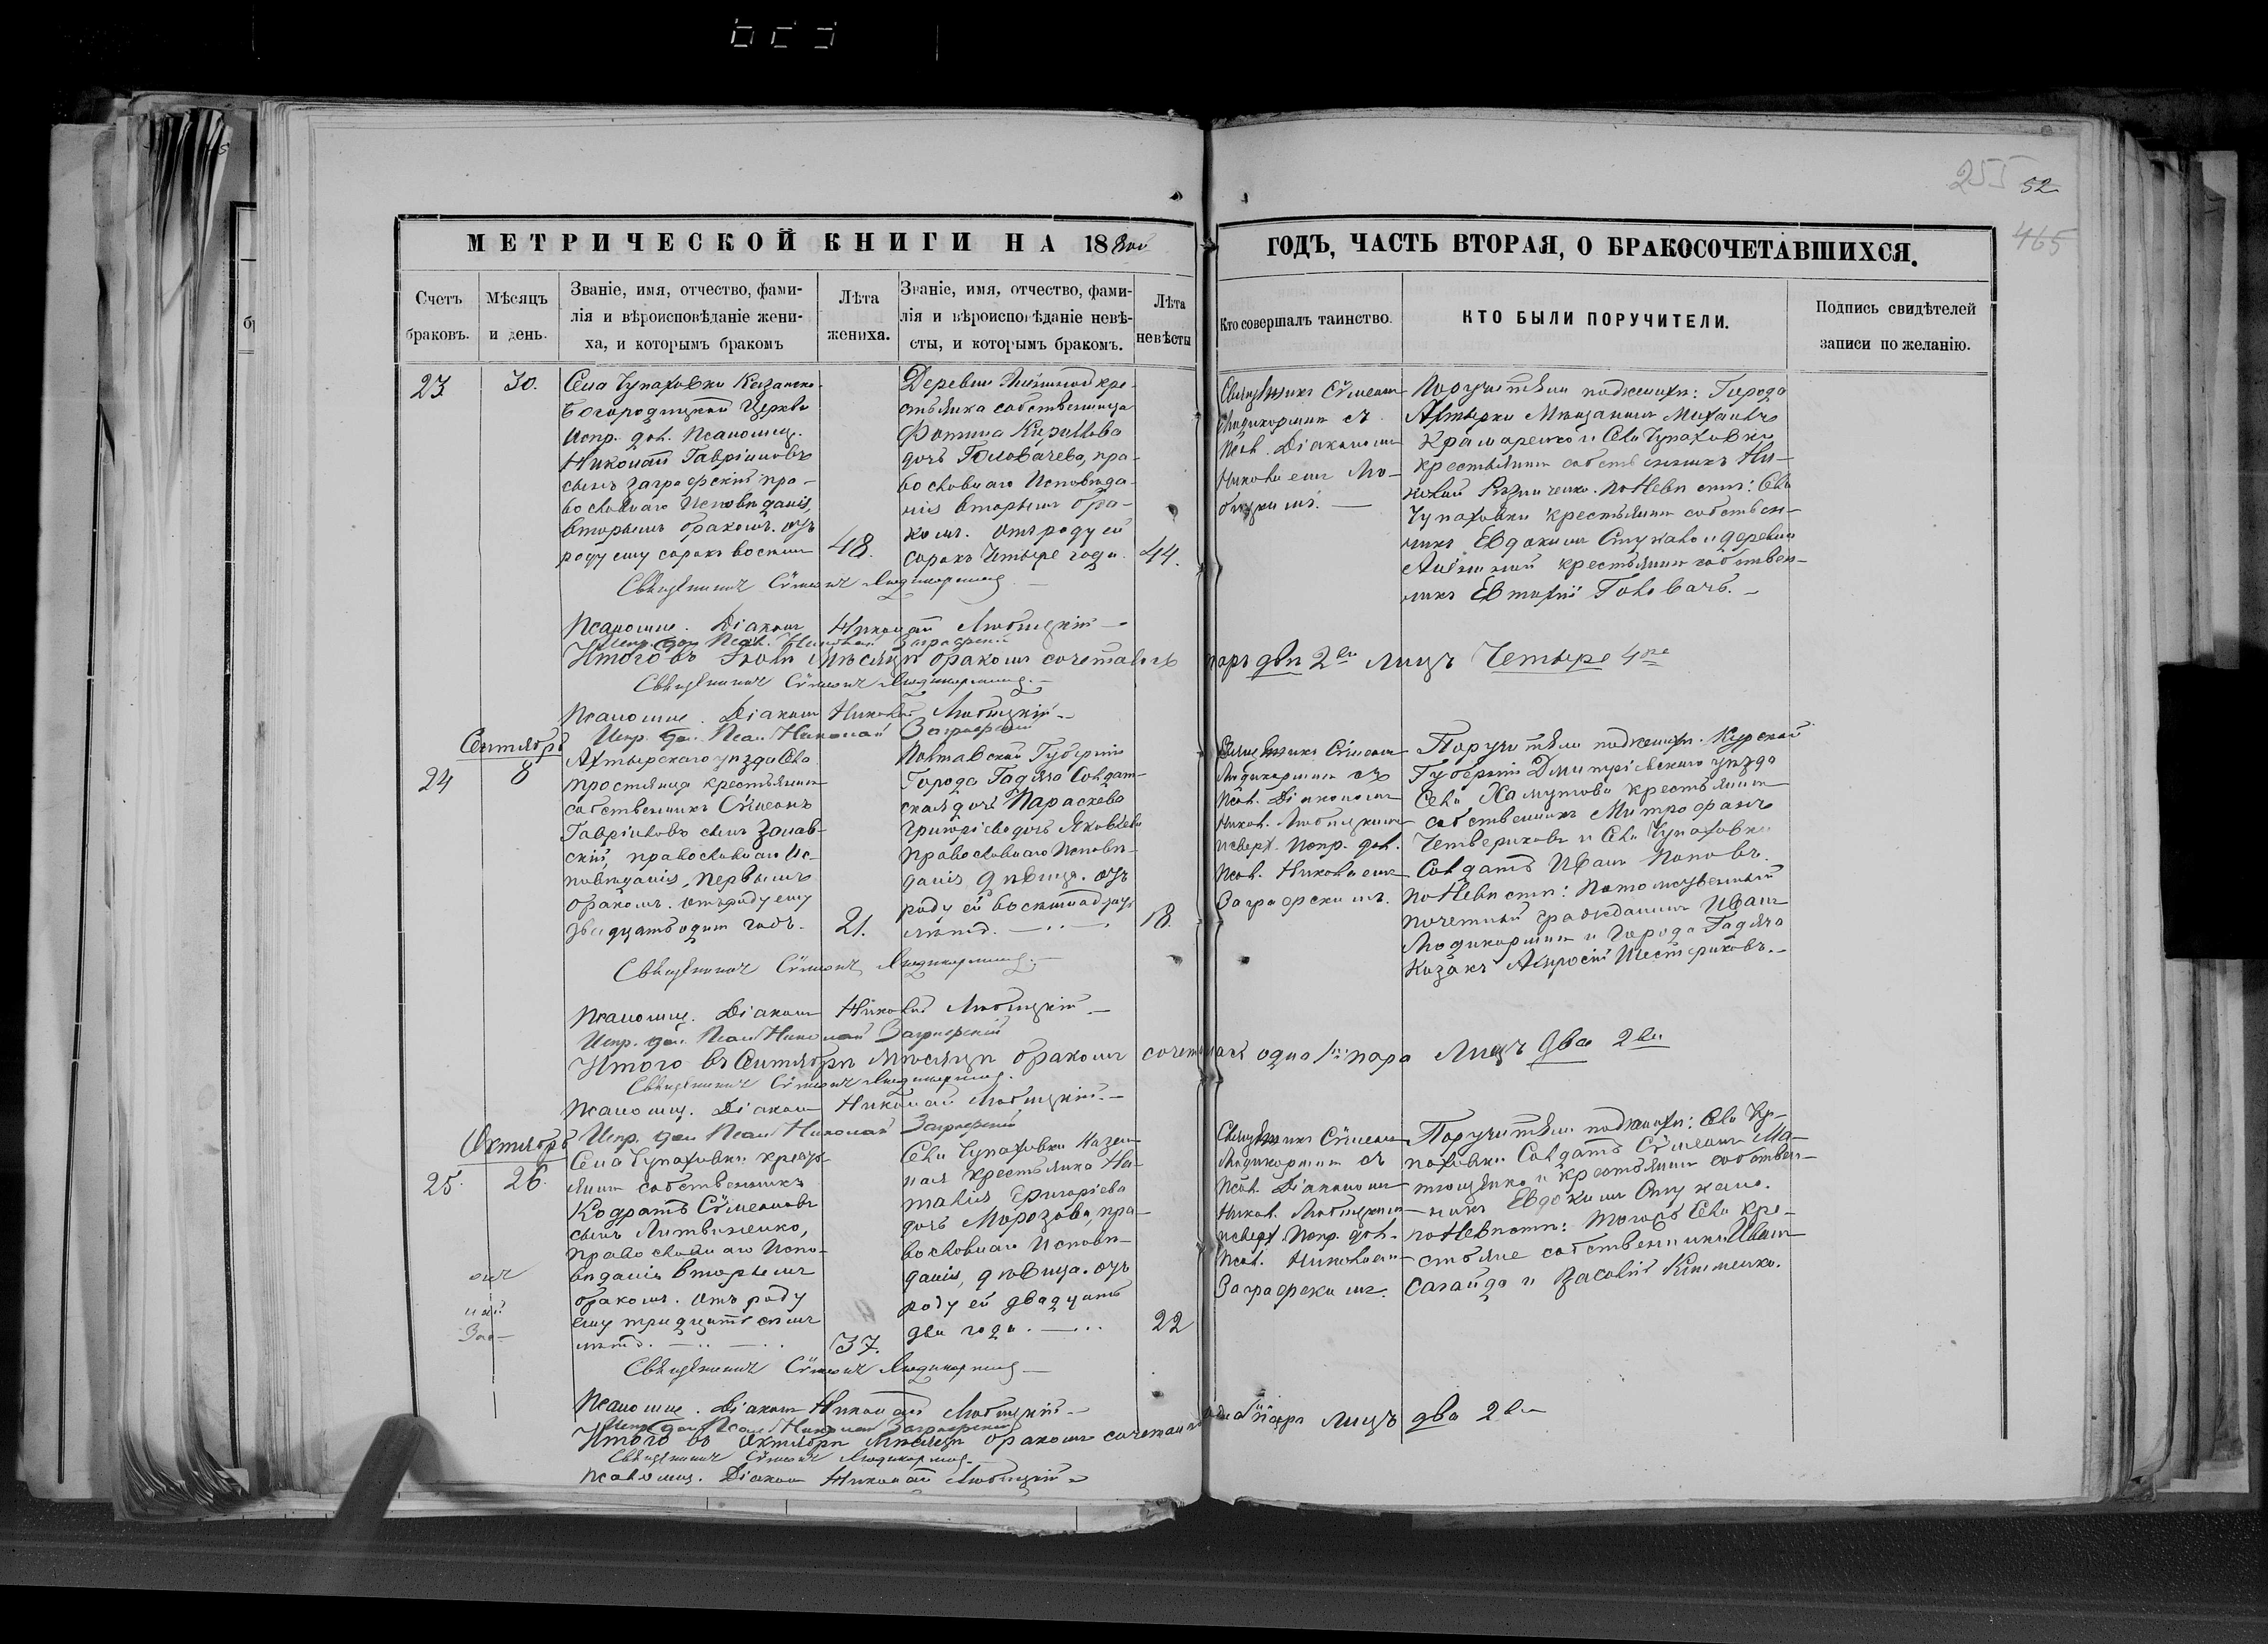 255 52
465
МЕТРИЧЕСКОЙ КНИГИ НА 18 ГОДЪ, ЧАСТЬ ВТОРАЯ, О БРАКОСОЧЕТАВШИХСЯ.
Счетъ браковъ.
Мѣсяцъ и день.
Званіе, имя, отчество, фами-
лія и вѣроисповѣданіе жени-
ха, и которымъ бракомъ
Лѣта жениха.
Званіе, имя, отчество, фами-
лія и вѣроисповѣданіе невѣ-
сты, и которымъ бракомъ.
Лѣта невѣсты
Кто совершалъ таинство.
КТО БЫЛИ ПОРУЧИТЕЛИ.
Подпись свидѣтелей
записи по желанію.
23
30.
Села Чупаховки Казанско-
Богородицкой Церкви
Испр. дол. Псаломщ.
Николай Гавріиловъ
сынъ Заграфскій, пра-
вославнаго Исповѣданія,
вторымъ бракомъ. отъ
роду ему сорокъ восемь
48.
Деревни кре-
стьянка собственница
Фотина Кирилова
дочь Головачева, пра-
вославнаго Исповѣда-
нія вторымъ бра-
комъ. Отъ роду ей
сорокъ четыре года.
44.
Священникъ Сѵмеонъ
съ
Псал. Діакономъ
Николаемъ Лю-
бицкимъ.
Поручители по женихѣ: Города
Ахтырки Мѣщанинъ Михаилъ
Крамаренко и Села Чупаховки
крестьянинъ собственникъ Ни-
колай по Невѣстѣ: Села
Чупаховки крестьянинъ собствен-
никъ Евдокимъ и деревни
крестьянинъ собствен-
никъ Евтихій Головачъ.
Священникъ Сѵмеонъ
Псаломщ. Діаконъ Николай Любицкій
Испр. дол. Псал. Николай Заграфскій
Итого въ мѣсяцѣ бракомъ сочеталось паръ двѣ 2ве лицъ Четыре 4ре
Священникъ Сѵмеонъ
Псаломщ. Діаконъ Николай Любицкій
Испр. дол. Псал. Николай Заграфскій
Сентябрь
24
8
Ахтырскаго уѣзда Села
Тростянца крестьянинъ
собственникъ Сѵмеонъ
Гавріиловъ сынъ Залав-
скій, православнаго Ис-
повѣданія, первымъ
бракомъ. отъ роду ему
двадцать одинъ годъ.
21.
Полтавской Губерніи
Города Гадяча Солдат-
ская дочь Параскева
Григоріева дочь Яковлева
православнаго Исповѣ-
данія, дѣвица. отъ
роду ей восемнадцать
лѣтъ.
18.
Священникъ Сѵмеонъ
съ
Псал. Діакономъ
Никол. Любицкимъ
и сверх. Испр. дол.
Псал. Николаемъ
Заграфскимъ.
Поручители по женихѣ: Курской
Губерніи Дмитріевскаго уѣзда
Села Хамутова крестьянинъ
собственникъ Митрофанъ
Четвериковъ и Села Чупаховки
Солдатъ Иванъ Поповъ.
по Невѣстѣ: Потомственный
почетный гражданинъ Иванъ
и Города Гадяча
Козакъ Амвросій Шестериковъ.
Священникъ Сѵмеонъ
Псаломщ. Діаконъ Николай Любицкій
Испр. дол. Псал. Николай Заграфскій
Итого въ Сентябрѣ мѣсяцѣ бракомъ сочеталась одна пара лицъ два 2ва
Священникъ Сѵмеонъ
Псаломщ. Діаконъ Николай Любицкій
Испр. дол. Псал. Николай Заграфскій
Октябрь
25.
26.
Села Чупаховки кресть-
янинъ собственникъ
Кодратъ Сѵмеоновъ
сынъ Литвиненко,
православнаго Испо-
вѣданія вторымъ
бракомъ. Отъ роду
ему тридцать семь
лѣтъ.
37.
Села Чупаховки казен-
ная крестьянка На-
талія Григоріева
дочь Морозова, пра-
вославнаго Исповѣ-
данія, дѣвица. отъ
роду ей двадцать
два года.
22
Священникъ Сѵмеонъ
съ
Псал. Діакономъ
Никол. Любицкимъ
и сверх. Испр. дол.
Псал. Николаемъ
Заграфскимъ.
Поручители по женихѣ: Села Чу-
паховки Солдатъ Сѵмеонъ Ма-
и крестьянинъ собствен-
никъ Евдокимъ
по Невѣстѣ: Тогожъ Села кре-
стьяне собственники Иванъ
Сагайда и Василій
Священникъ Сѵмеонъ
Псаломщ. Діаконъ Николай Любицкій
Испр. дол. Псал. Николай Заграфскій
Итого въ Октябрѣ мѣсяцѣ бракомъ сочеталась одна пара лицъ два 2ва
Священникъ Сѵмеонъ
Псаломщ. Діаконъ Николай Любицкій